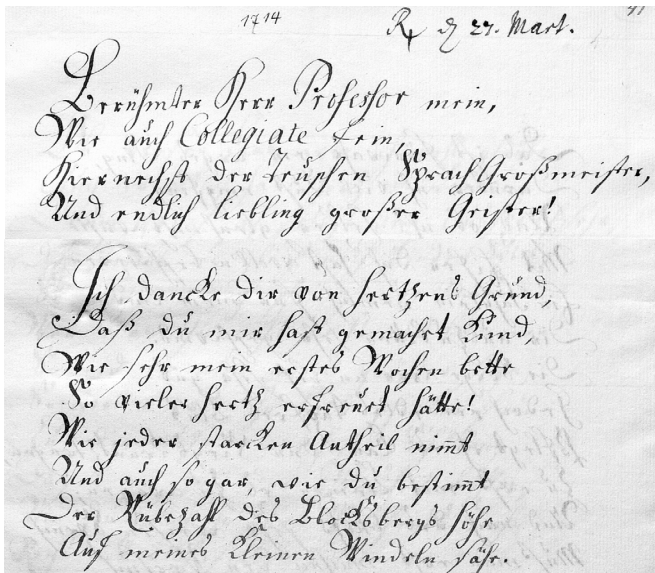 1714
R d 27. Mart.
Berühmter Herr Professor mein,
Wie auch Collegiate fein,
Hiernechst der Teuschen Sprach Großmeister,
Und endlich liebling großer Geister!
Ich dancke dir von hertzens Grund,
Daß du mir hast gemachet Kund,
Wie sehr mein erstes Wochen bette
So vieler hertz erfreuet hätte!
Wie jeder starcken Antheil nimt
Und auch so gar, wie du bestimt
Der Rübezahl des Blocksbergs höhe
Auf meines Kleinen Windeln sähe.